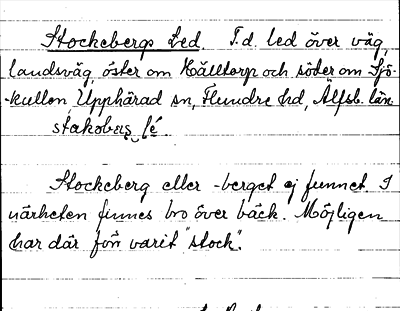 Stockebergs Led. T.d. led över väg,
landsväg, öster om Källtorp och söder om Sjö-
-kullen, Upphärad sn, Flundre hd, Älfsb. län
stakobærs lé
Stockeberg eller -berget ej funnet. I
närheten finnes bro över bäck. Möjligen
har där förr varit "stock".